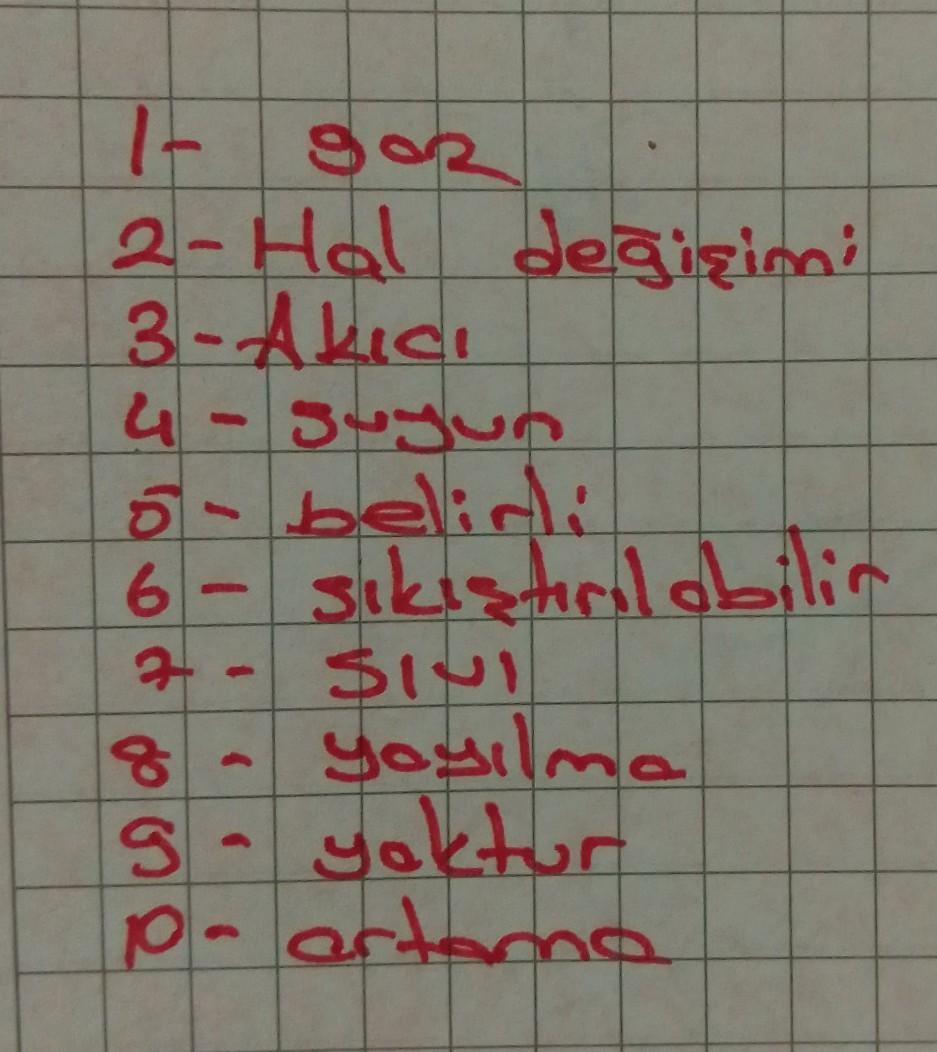 1- gaz
2- Hal değişimi
3- Akıcı
4- suyun
5- belirli
6- sıkıştırılabilir
7- sıvı
8- yayılma
9- yoktur
10- artama